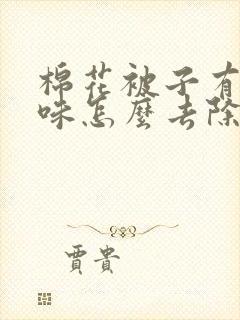 棉花被子有
味怎麼去除
賈貴